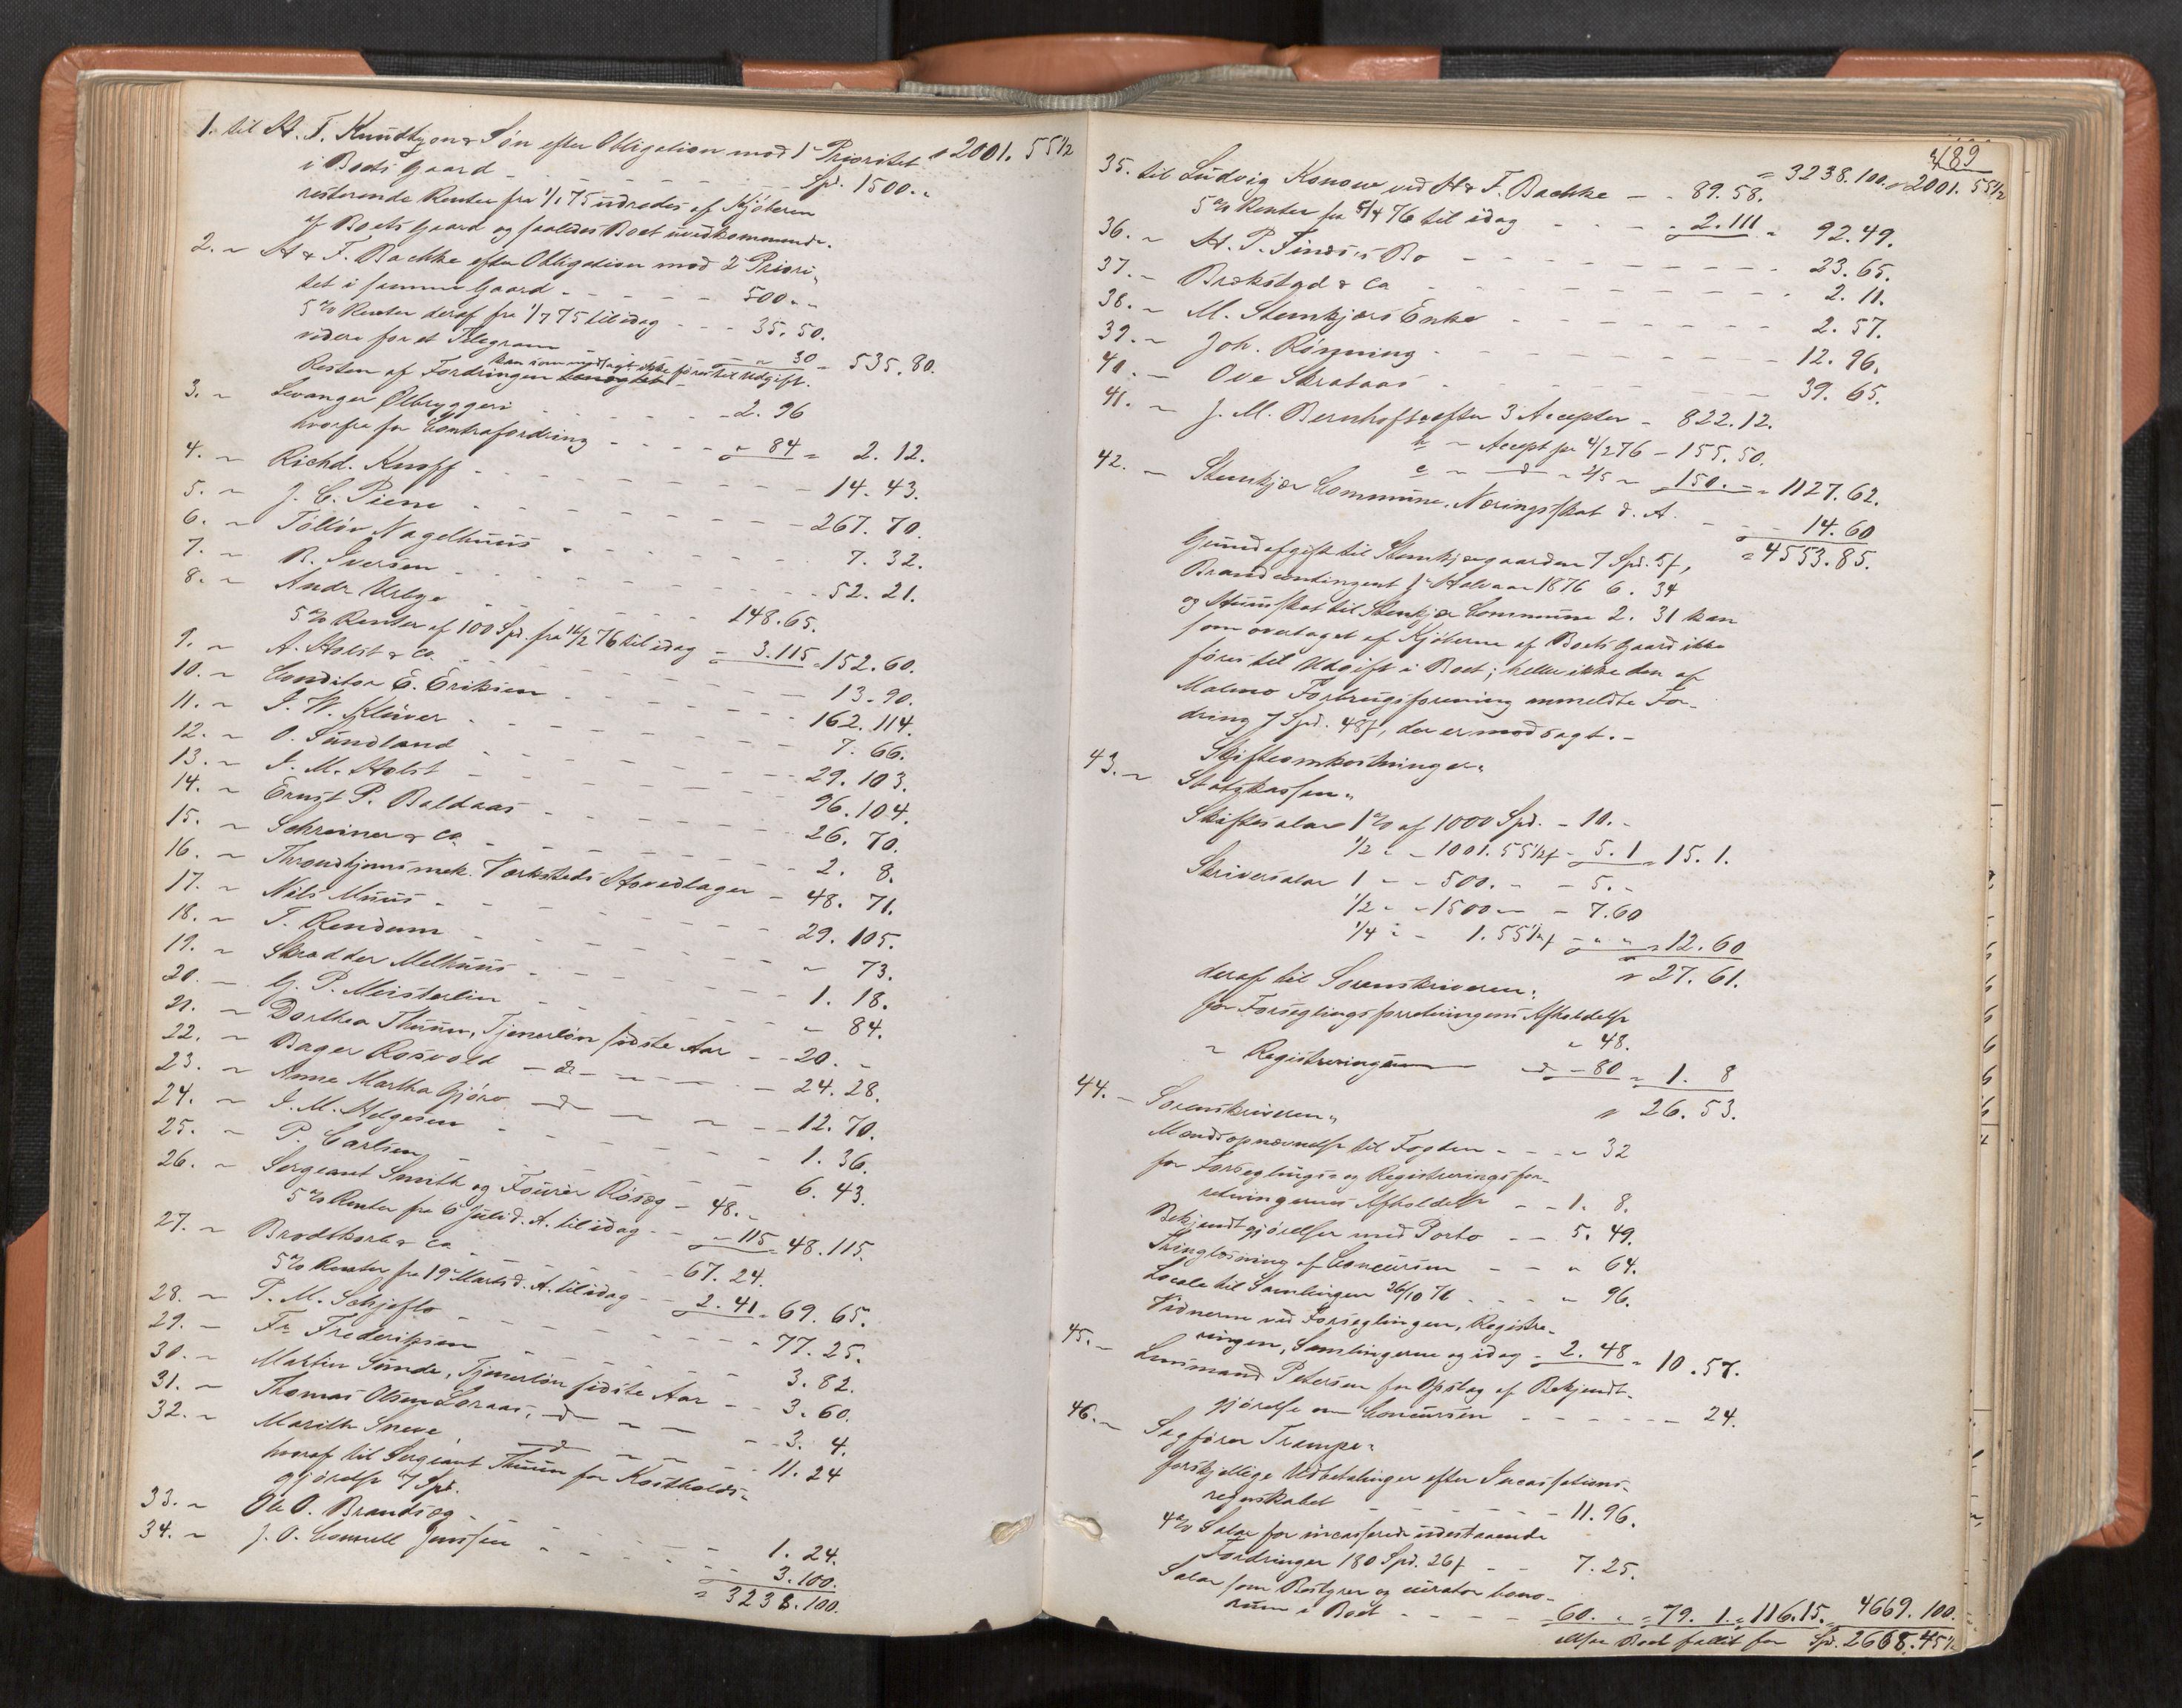 1. til H. F. Knudtzon & Søn efter Obligation mod 1ste Prioritet " 2001. 55½
i Boets Gaard - - - Spd. 1500. "
resterende Renter fra 1/1 75 udredes af Kjøberen
af Boets Gaard og saaledes Boet uvedkommende.
2. " H & F. Bachke efter Obligation mod 2 Priori-
tet i samme Gaard - - - 500. "
5% Renter deraf fra 1/7 75 til idag - - - 35. 50.
videre for et Telegram - - " 30 = 535. 80.
kan som modsagt ikke føres til Udgift.
Resten af Fordringen
3. " Levanger Ølbryggeri - - - 2. 96
hvorfra for Contrafordring - - - " 84 = 2. 12.
4. " Richd. Knoff - - - 14. 43.
5. " J. C. Piene - - - 267. 70.
6. " Tølløv Nagelhuus - - - 7. 32.
7. " B. Iversen - - - 52. 21.
8. " Andr Urbye - - - 148. 65.
5% Renter af 100 Spd. fra 14/2 76 til idag - 3. 115 = 152. 60.
9. " A. Holst & Co. - - - 13. 90.
10. " Conditor E. Eriksen - - - 162. 114.
11. " J. W. Klüver - - - 7. 66.
12. " O. Sundland - - - 29. 103.
13. " J. M. Holst - - - 96. 104.
14. " Ernst P. Baldaas - - - 26. 70.
15. " Schreiner & Co. - - - 2. 8.
16. " Throndhjems mek. Værksteds Hovedlager - 48. 71.
17. " Nils Muus - - - 29. 105.
18. " T. Rendum - - - " 73.
19. " Skrædder Melhuus - - - 1. 18.
20. " G. P. Meisterlin - - - " 84.
21. " Dorthea Thuun, Tjenerløn sidste Aar - - 20. -
22. " Bager Rosvold - d - - - 24. 28.
23. " Anne Martha Gjørv - d - - - 12. 70.
24. " J. M. Helgesen - - - 1. 36.
25. " P. Carlsen - - - 6. 43.
26. " Sergeant Smith og Fourer Røseg - 48. "
5% Renter fra 6 Juli d. A. til idag - - " 115 = 48. 115.
27. " Brodtkorb & Co - - - 67. 24.
5% Renter fra 19 Marts d. A. til idag - - 2. 41 = 69. 65.
28. " P. M. Schjeflo - - - 77. 25.
29. " Fr Frederiksen - - - 3. 82.
30. " Martin Sunde, Tjenerløn sidste Aar - - 3. 60.
31. " Thomas Olsen Loraas, - d - - - 3. 4.
32. " Marith Sneve, - d - - - 11. 24
hvoraf til Sergeant Thuun for Kostholds-
gjørelse 7 Spd.
33. " Ole O. Brandsæg - - - 1. 24.
34. " J. O. Conrull Jenssen - - - 3. 100.
= 3238. 100.
489
= 3238. 100. " 2001. 55½
35. til Ludvig Konow ved H & F. Bachke - - 89. 58.
5% Renter fra 5/4 76 til idag - - - 2. 111 = 92. 49.
36. " H. P. Finds's Bo - - - 23. 65.
37. " Brækstad & Co - - - 2. 11.
38. " M. Stenkjærs Enke - - - 2. 57.
39. " Joh. Rønning - - - 12. 96.
40. - Ove Skrataas - - - 39. 65.
41. " J. M. Bernhoft a efter 3 Accepter - 822. 12.
b " Accept pr 4/2 76 - 155. 50.
c " d " 2/5 " 150. - = 1127. 62.
42. - Stenkjær Commune. Næringsskat d. A. - - - 14. 60
= 4553. 85.
Grundafgift til Stenkjærgaarden 7 Spd. 5 s,
Brandcontingent 1ste Halvaar 1876 6. 34
og Huusskat til Stenkjær Commune 2. 31 kan
som overtaget af Kjøberne af Boets Gaard ikke
føres til Udgift i Boet; heller ikke den af
Malmo Forbrugsforening anmeldte For-
dring 7 Spd. 48 s, der er modsagt. -
Skifteomkostninger:
43. " Statskassen:
Skiftesalar 1% af 1000 Spd. - 10. -
½ " - 1001. 55½ s - 5. 1 = 15. 1.
Skriversalar 1 - - 500. - - 5. -
½ " - 1500 - - 7. 60
¼ " - 1. 55½ s - " " = 12. 60
" 27. 61.
deraf til Sorenskriveren:
for Forseglingsforretningens Afholdelse
" 48.
" Registreringens - d - 80 = 1. 8
" 26. 53.
44. - Sorenskriveren:
Mandsopnævnelse til Fogden - - - " 32
for Forseglings- og Registreringsfor-
retningernes Afholdelse - - 1. 8.
Bekjendtgjørelser med Porto - - 5. 49.
Thinglæsning af Concursen - - " 64.
Locale til Samlingen 26/10 76 - - - " 96.
Vidnerne ved Forseglingen, Registre-
ringen, Samlingerne og idag - 2. 48 = 10. 57.
45. - Lensmand Petersen for Opslag af Bekjendt-
gjørelse om Concursen - - - 24.
46. " Sagfører Trampe:
forskjellige Udbetalinger efter Incassations-
regnskabet - - - 11. 96.
4% Salar for incasserede udestaaende
Fordringer 180 Spd. 26 s - - 7. 25.
Salar som Bestyrer og curator bono-
rum i Boet - - - 60. " = 79. 1. = 116. 15. = 4669. 100.
altsaa Boet fallit for Spd. 2668. 45½